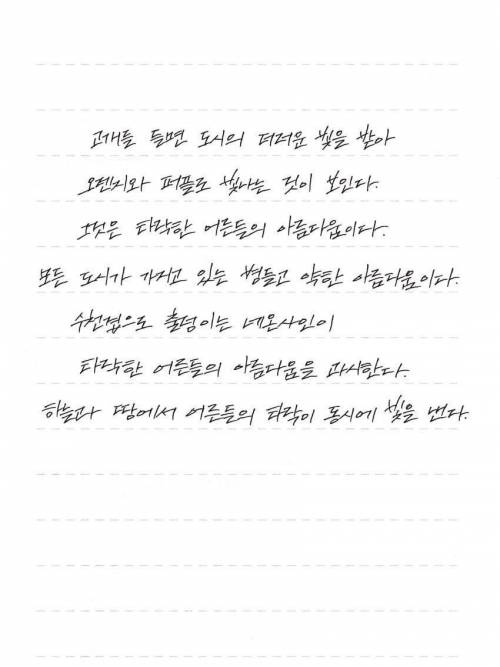 고개를 들면 도시의 더러운 빛을 받아
오렌지와 퍼플로 빛나는 것이 보인다.
그것은 타락한 어른들의 아름다움이다.
모든 도시가 가지고 있는 병들고 약한 아름다움이다.
수천겹으로 출렁이는 네온사인이
타락한 어른들의 아름다움을 과시한다.
하늘과 땅에서 어른들의 타락이 동시에 빛을 낸다.